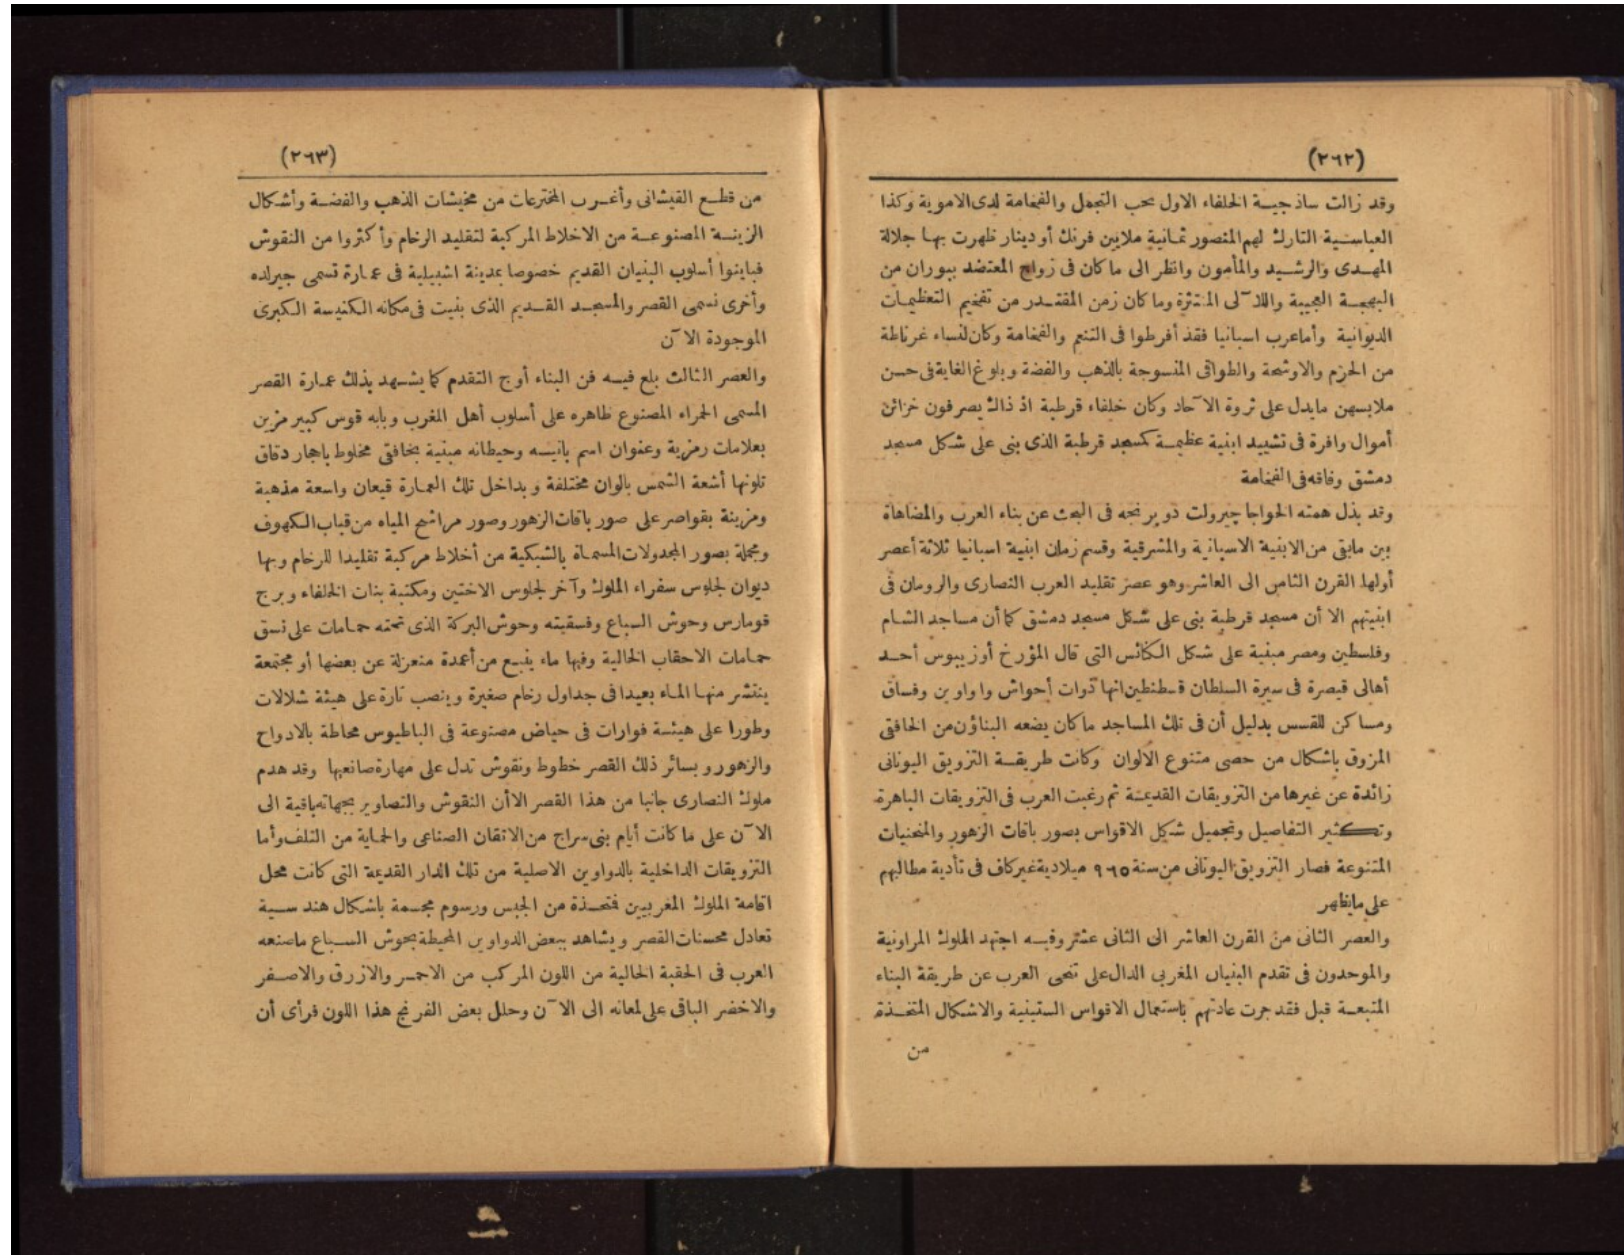 (٢٦٢)
وقد زالت ساذجية الخلفاء الاول بحب التجمل والفخامة لدى الاموية وكذا
العباسية التارك لهم المنصور ثمانية ملايين فرنك أو دينار ظهرت بها جلالة
المهدى والرشيد والمأمون وانظر الى ما كان فى زواج المعتضد ببوران من
البهجة العجيبة واللآلى المنتثرة وما كان زمن المقتدر من تفخيم التعظيمات
الديوانية وأما عرب اسبانيا فقد أفرطوا فى التنعم والفخامة وكان لنساء غرناطة
من الحزم والاوشحة والطواقى المنسوجة بالذهب والفضة وبلوغ الغاية فى حسن
ملابسهن مايدل على ثروة الآحاد وكان خلفاء قرطبة اذ ذاك يصرفون خزائن
أموال وافرة فى تشييد ابنية عظيمة كمسجد قرطبة الذى بنى على شكل مسجد
دمشق وفاقه فى الفخامة
وقد بذل همته الخواجا جيرولت دوبرنجه فى البحث عن بناء العرب والمضاهاة
بين مابقى من الابنية الاسبانية والمشرقية وقسم زمان ابنية اسبانيا ثلاثة أعصر
أولها القرن الثامن الى العاشر وهو عصر تقليد العرب النصارى والرومان فى
ابنيتهم الا أن مسجد قرطبة بنى على شكل مسجد دمشق كما أن مساجد الشام
وفلسطين ومصر مبنية على شكل الكنائس التى قال المؤرخ أوزيبوس أحد
أهالى قيصرة فى سيرة السلطان قسطنطين انها ذوات أحواش واواوين وفساق
ومساكن للقسس بدليل أن فى تلك المساجد ما كان يضعه البناؤن من الخافقى
المزوق باشكال من حصى متنوع الالوان وكانت طريقة التزويق اليونانى
زائدة عن غيرها من التزويقات القديمة ثم رغبت العرب فى التزويقات الباهرة
وتكثير التفاصيل وتجميل شكل الاقواس بصور باقات الزهور والمنحنيات
المتنوعة فصار التزويق اليونانى من سنة ٩٦٥ ميلادية غير كاف فى تأدية مطالبهم
على مايظهر
والعصر الثانى من القرن العاشر الى الثانى عشر وفيه اجتهد الملوك المراونية
والموحدون فى تقدم البنيان المغربى الدال على تنحى العرب عن طريقة البناء
المتبعة قبل فقد جرت عادتهم باستعمال الاقواس الستينية والاشكال المتخذة
من
(٢٦٣)
من قطع القيشانى وأغرب المخترعات من مخيشات الذهب والفضة وأشكال
الزينة المصنوعة من الاخلاط المركبة لتقليد الرخام وأكثروا من النقوش
فباينوا أسلوب البنيان القديم خصوصا بمدينة اشبيلية فى عمارة تسمى جيرلده
وأخرى تسمى القصر والمسجد القديم الذى بنيت فى مكانه الكنيسة الكبرى
الموجودة الآن
والعصر الثالث بلغ فيه فن البناء أوج التقدم كما يشهد بذلك عمارة القصر
المسمى الحمراء المصنوع ظاهره على أسلوب أهل المغرب وبابه قوس كبير مزين
بعلامات رمزية وعنوان اسم بانيه وحيطانه مبنية بخافقى مخلوط باحجار دقاق
تلونها أشعة الشمس بالوان مختلفة وبداخل تلك العمارة قيعان واسعة مذهبة
ومزينة بقواصر على صور باقات الزهور وصور مراشح المياه من قباب الكهوف
ومجملة بصور المجدولات المسماة بالشبكية من أخلاط مركبة تقليدا للرخام وبها
ديوان لجلوس سفراء الملوك وآخر لجلوس الاختين ومكتبة بنات الخلفاء وبرج
قومارس وحوش السباع وفسقيته وحوش البركة الذى تحته حمامات على نسق
حمامات الاحقاب الخالية وفيها ماء ينبع من أعمدة منعزلة عن بعضها أو مجتمعة
ينتشر منها الماء بعيدا فى جداول رخام صغيرة وينصب تارة على هيئة شلالات
وطورا على هيئة فوارات فى حياض مصنوعة فى الباطيوس محاطة بالادواح
والزهور وبسائر ذلك القصر خطوط ونقوش تدل على مهارة صانعيها وقد هدم
ملوك النصارى جانبا من هذا القصر الاأن النقوش والتصاوير بجهاته باقية الى
الآن على ما كانت أيام بنى سراج من الاتقان الصناعى والحماية من التلف وأما
التزويقات الداخلية بالدواوين الاصلية من تلك الدار القديمة التى كانت محل
اقامة الملوك المغربيين فتخذة من الجبس ورسوم مجسمة باشكال هندسية
تعادل محسنات القصر ويشاهد ببعض الدواوين المحيطة بحوش السباع ماصنعه
العرب فى الحقبة الخالية من اللون المركب من الاحمر والازرق والاصفر
والاخضر الباقى على لمعانه الى الآن وحلل بعض الفرنج هذا اللون فرأى أن